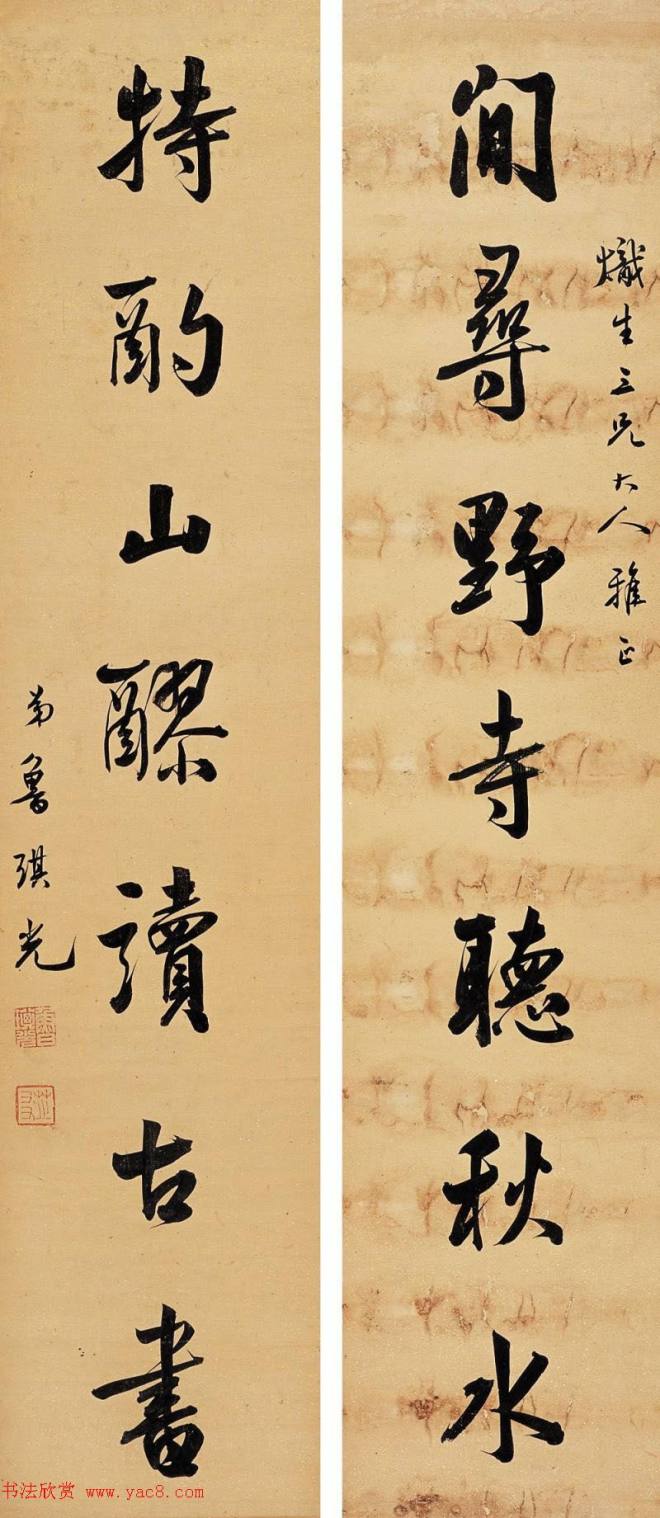 熾生三兄大人雅正
閒尋野寺聽秋水
特酌山醪讀古書
弟魯琪光
书法欣赏 www.yac8.com